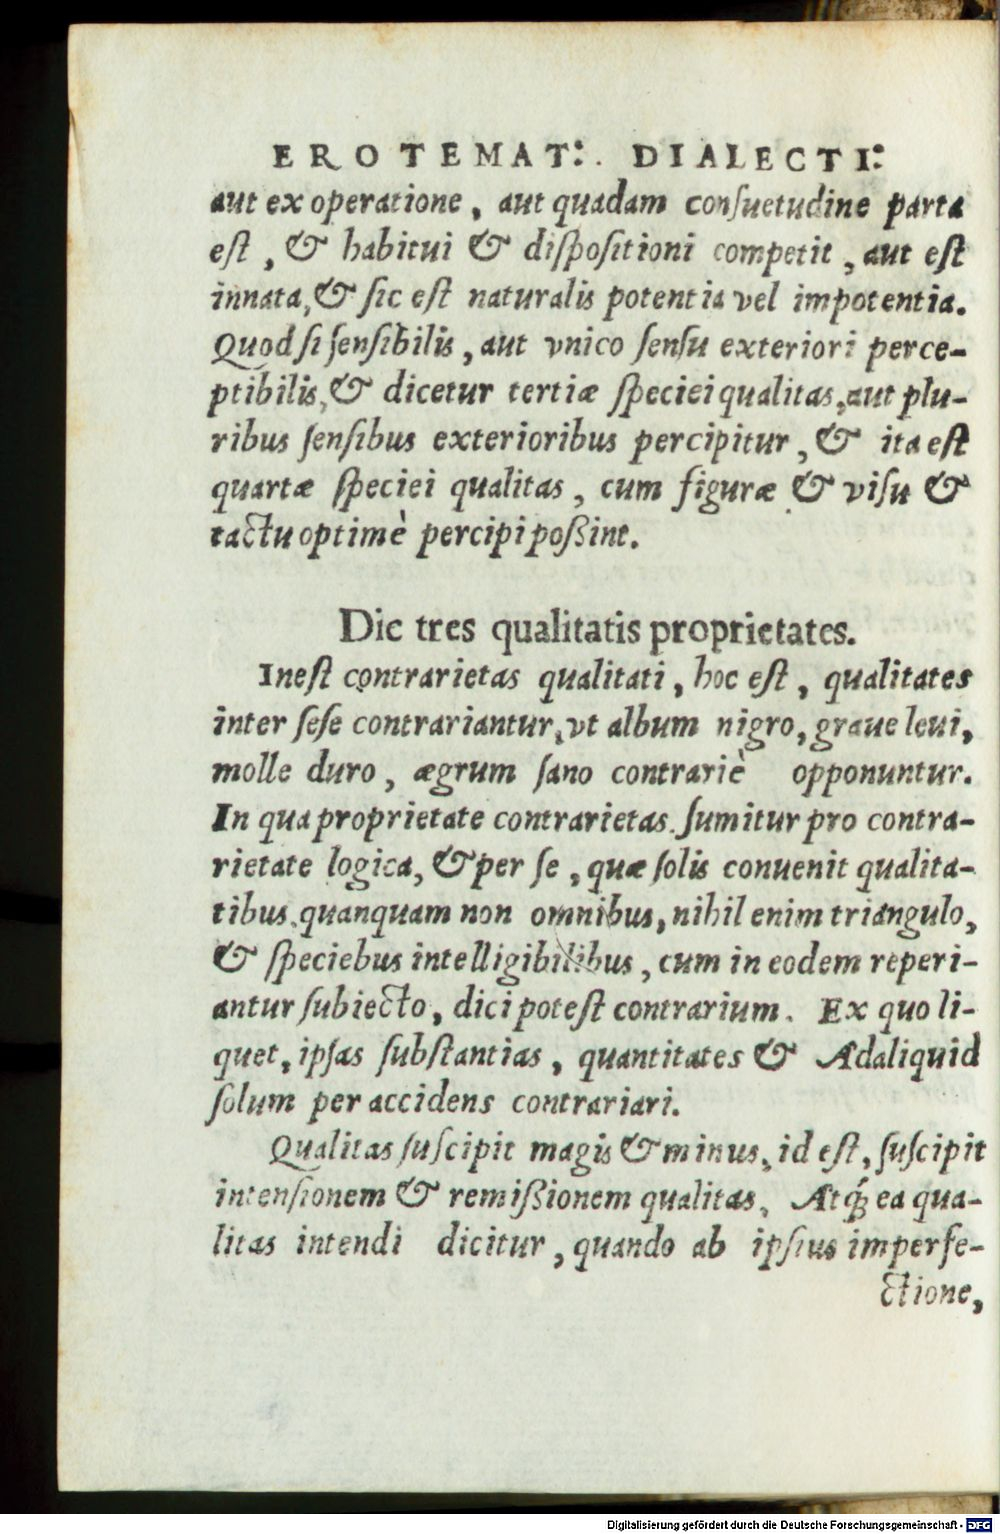 EROTEMAT:. DIALECTI:
aut ex operatione, aut quadam conſuetudine parta
eſt, & habitui & diſpoſitioni competit, aut eſt
innata, & ſic eſt naturalis potentia vel impotentia.
Quod ſi ſenſibilis, aut vnico ſenſu exteriori perce-
ptibilis, & dicetur tertiæ ſpeciei qualitas, aut plu-
ribus ſenſibus exterioribus percipitur, & ita eſt
quartæ ſpeciei qualitas, cum figuræ & viſu &
tactu optimè percipi poßint.
Dic tres qualitatis proprietates.
Ineſt contrarietas qualitati, hoc eſt, qualitates
inter ſeſe contrariantur, vt album nigro, graue leui,
molle duro, ægrum ſano contrariè opponuntur.
In qua proprietate contrarietas ſumitur pro contra-
rietate logica, & per ſe, quæ ſolis conuenit qualita-
tibus, quanquam non omnibus, nihil enim triangulo,
& ſpeciebus intelligibilibus, cum in eodem reperi-
antur ſubiecto, dici poteſt contrarium. Ex quo li-
quet, ipſas ſubſtantias, quantitates & Adaliquid
ſolum per accidens contrariari.
Qualitas ſuſcipit magis & minus, id eſt, ſuſcipit
intenſionem & remißionem qualitas, Atq́; ea qua-
litas intendi dicitur, quando ab ipſius imperfe-
ctione,
Digitalisierung gefördert durch die Deutsche Forschungsgemeinschaft - DFG